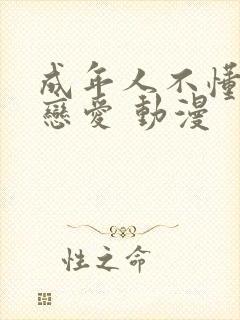 成年人不懂
戀愛 動漫
性之命